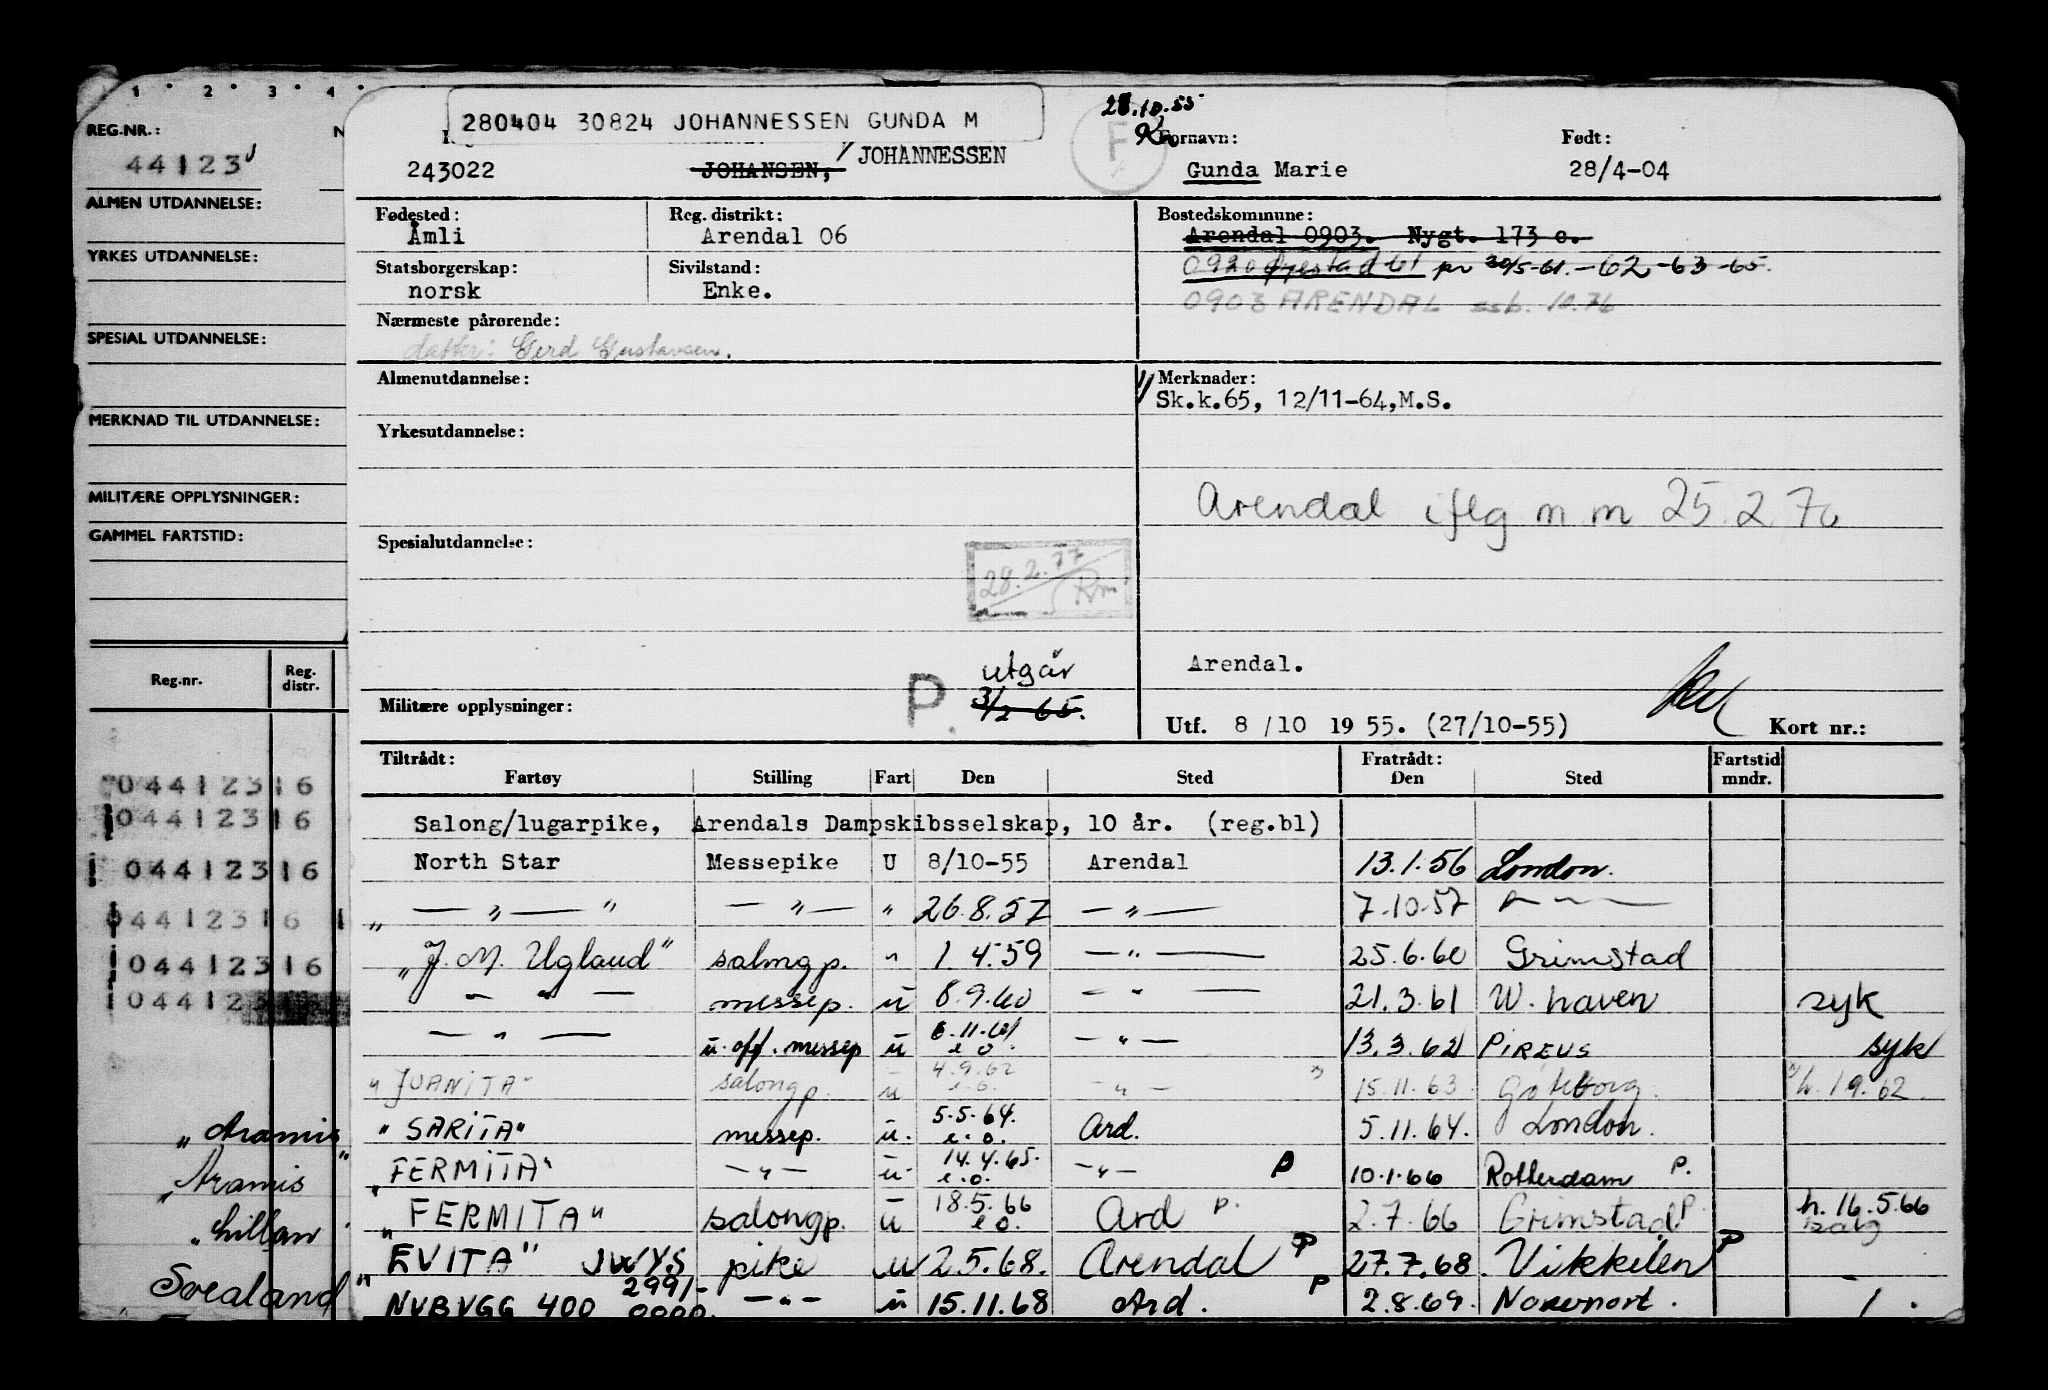 1 · 2 · 3 · 4 ·
REG.NR.:
44123
ALMEN UTDANNELSE:
YRKES UTDANNELSE:
SPESIAL UTDANNELSE:
MERKNAD TIL UTDANNELSE:
MILITÆRE OPPLYSNINGER:
GAMMEL FARTSTID:
Reg.nr. Reg. distr.
044123 16
044123 16
044123 16
044123 16
044123 16
044123
„Aramis"
„Aramis
„Lillan
Svealand
280404 30824 JOHANNESSEN GUNDA M
28.10.55
Fornavn: Født:
243022 JOHANSEN, JOHANNESSEN Gunda Marie 28/4-04
Fødested: Reg. distrikt: Bostedskommune:
Åmli Arendal 06 Arendal 0903. Nygt. 173 c.
Statsborgerskap: Sivilstand: 0920 Øyestad 61 pr 30/5-61.-62-63-65.
norsk Enke. 0903 ARENDAL ssb. 10.76
Nærmeste pårørende:
datter: Gerd Gustavsen.
Almenutdannelse: 1/ Merknader:
Sk.k.65, 12/11-64,M.S.
Yrkesutdannelse:
Arendal iflg m m 25.2.70
Spesialutdannelse:
28.2.77
utgår Arendal.
Militære opplysninger: P. 3/2 65.
Utf. 8/10 19 55. (27/10-55) Kort nr.:
Tiltrådt: Fratrådt: Fartstid
Fartøy Stilling Fart Den Sted Den Sted mndr.
Salong/lugarpike, Arendals Dampskibsselskap, 10 år. (reg.bl)
North Star Messepike U 8/10-55 Arendal 13.1.56 London.
„ — „ — " — „ — " 26.8.57 — „ — 7.10.57 — „ —
„J. M. Ugland" salongp. " 1.4.59 — „ — 25.6.60 Grimstad
— „ — messep. u 8.9.60 — „ — 21.3.61 W. haven syk
— „ — u. off. messep u 6.11.61 e.o. — „ — 13.3.62 PIREUS syk
"JUANITA" salongp. u 4.9.62 e.o. — „ — 15.11.63 Gøteborg. h. 1.9.62.
"SARITA" messep. u. 5.5.64. e.o. Ard. 5.11.64. London.
„FERMITA" — „ — u. 14.4.65. e.o. — „ — P 10.1.66 Rotterdam P.
„FERMITA" salongp. u 18.5.66 e.o. Ard P. 2.7.66 Grimstad P. h. 16.5.66 salg
"EVITA" JWYS pike u 2.5.68. Arendal P 27.7.68. Vikkilen P
" NYBYGG 400 2991/- 0000. — „ — u 15.11.68 Ard. P 2.8.69.